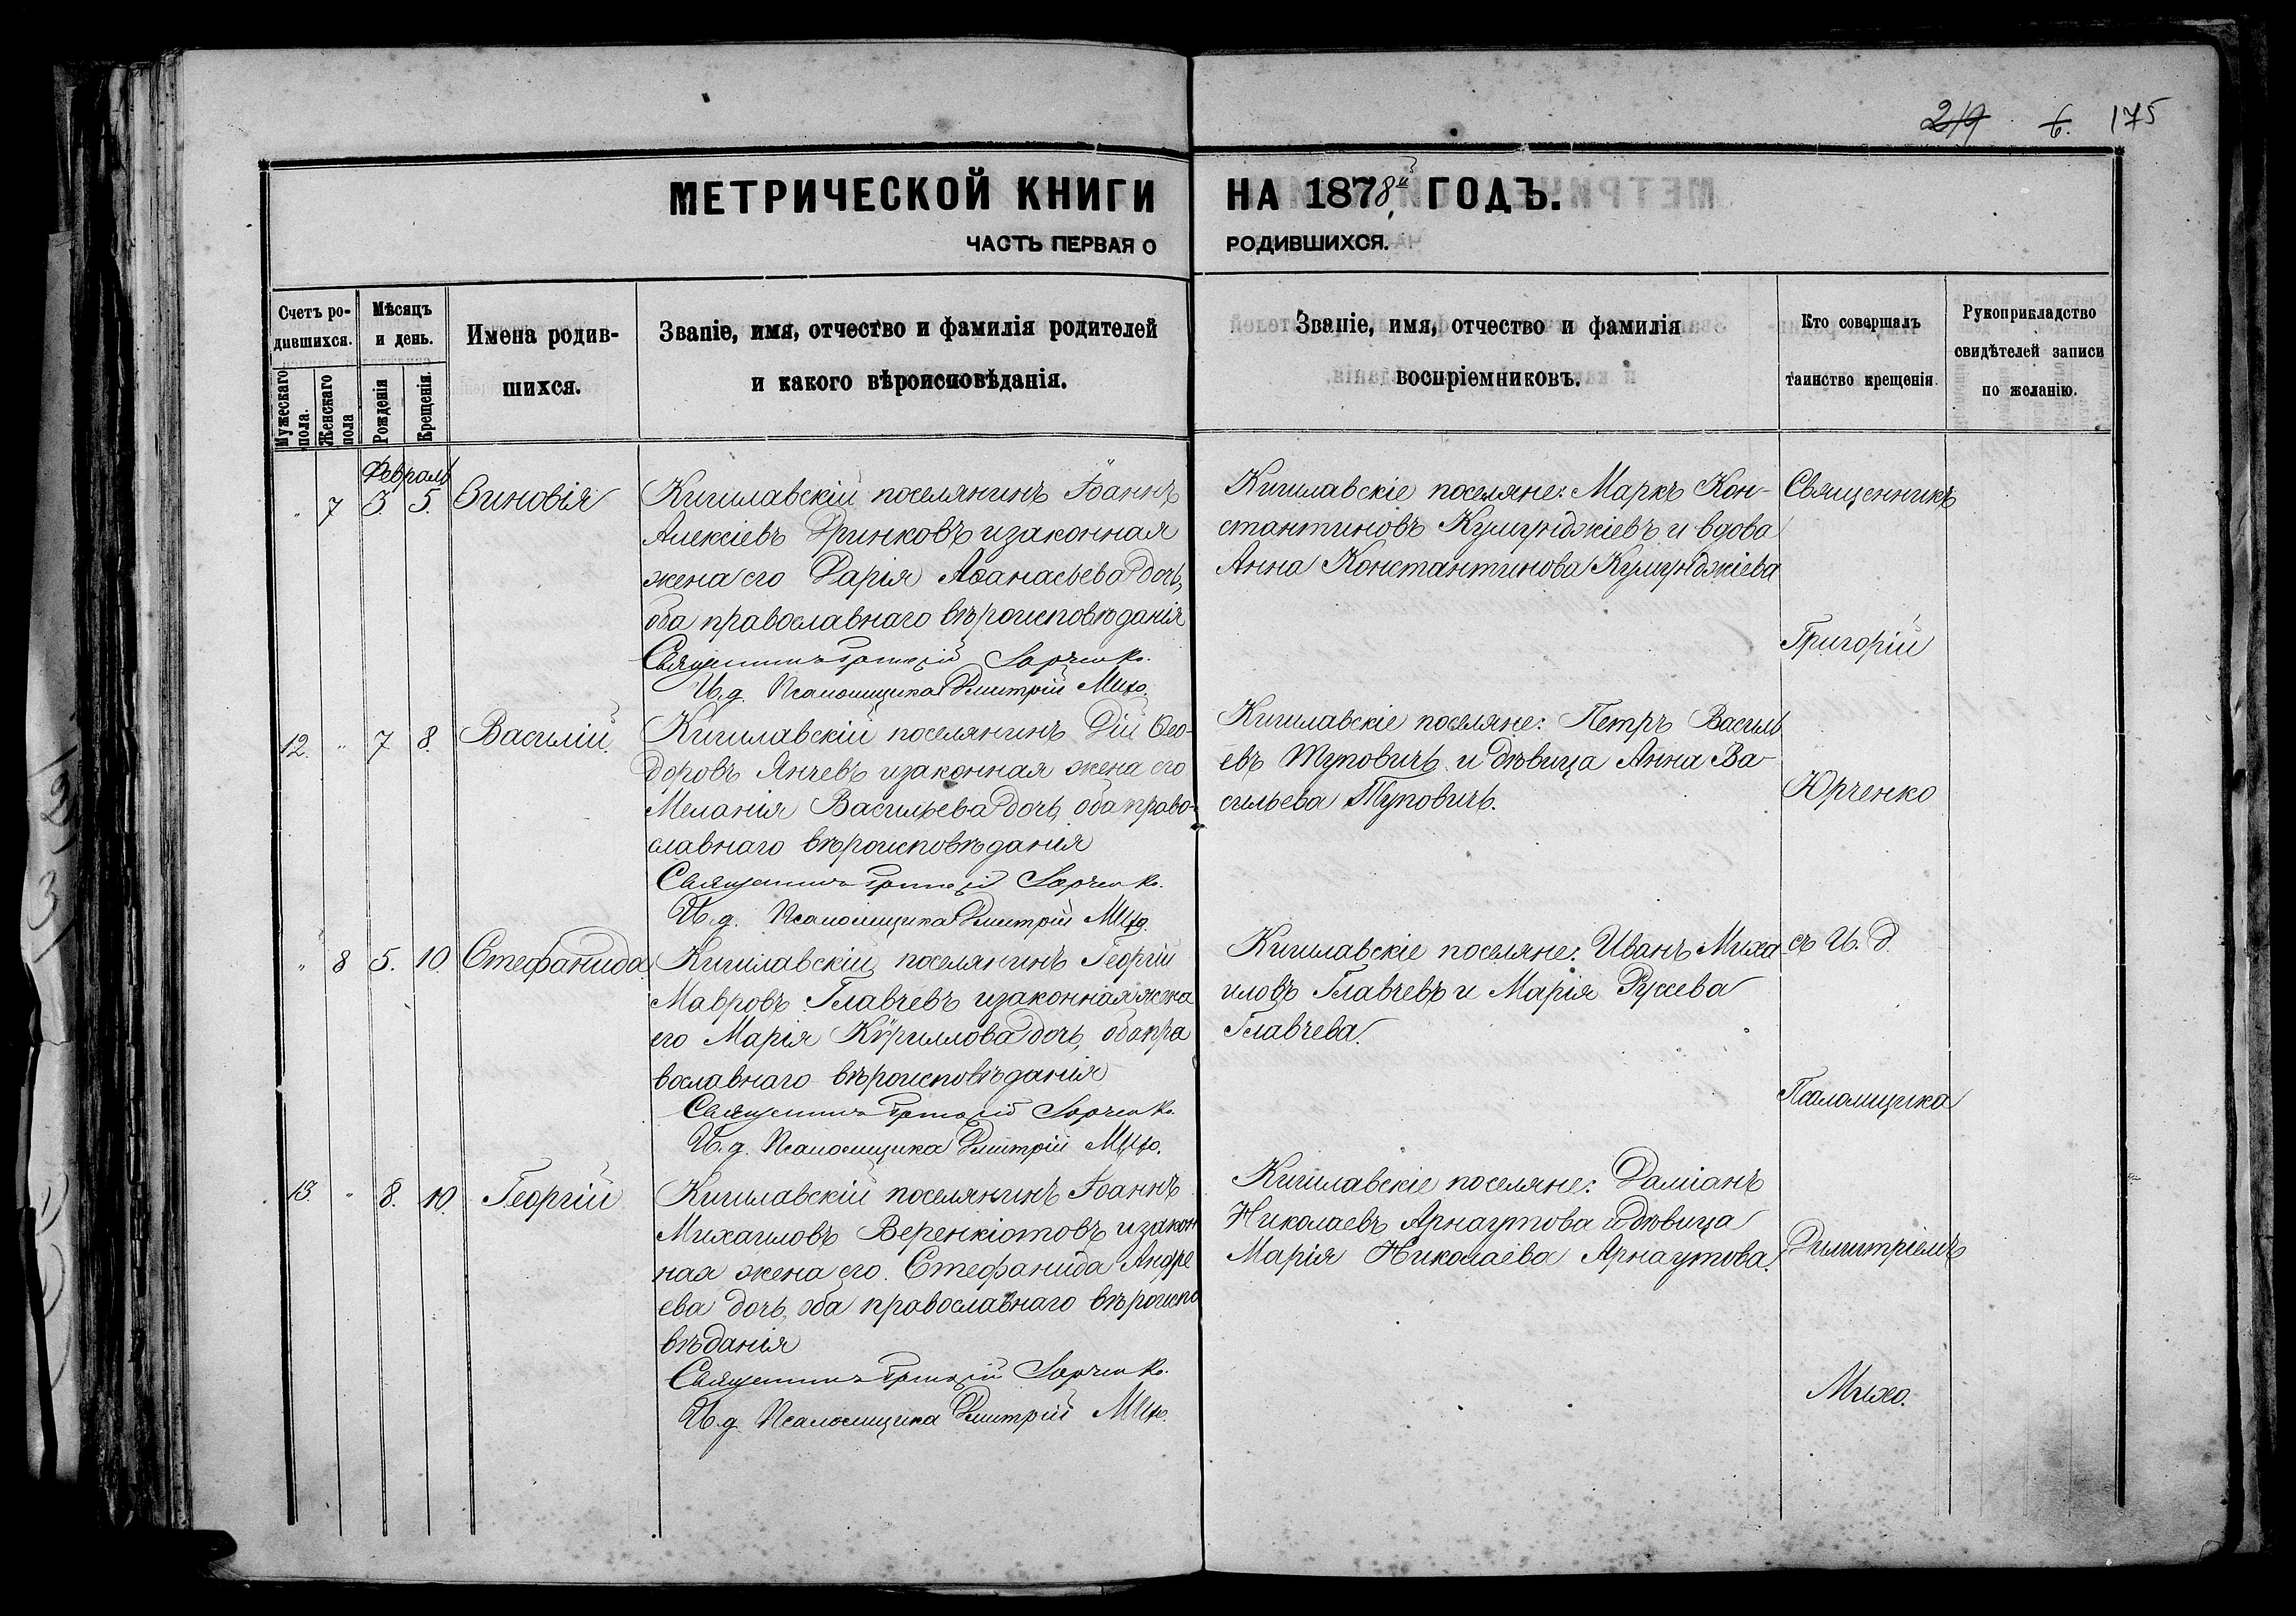 219 6. 175
МЕТРИЧЕСКОЙ КНИГИ НА 1878й ГОДЪ.
ЧАСТЬ ПЕРВАЯ О РОДИВШИХСЯ.
Счетъ ро-
дившихся.
Мужескаго
пола.
Женскаго
пола
Мѣсяцъ
и день.
Рожденія
Крещенія.
Имена родив-
шихся.
Званіе, имя, отчество и фамилія родителей
и какого вѣроисповѣданія.
Званіе, имя, отчество и фамилія
воспріемниковъ.
Кто совершалъ
таинство крещенія.
Рукоприкладство
свидѣтелей записи
по желанію.
Февраль
" 7 3. 5. Зиновія
Кигилавскій поселянинъ Іоаннъ
Алексіевъ Дринковъ и законная
жена его Дарія Аѳанасьева дочь,
оба православнаго вѣроисповѣданія
Священникъ Григорій Юрченко.
И. д. Псаломщика Димитрій Михо.
Кигилавскіе поселяне: Маркъ Кон-
стантиновъ Кумурджіевъ и вдова
Анна Константинова Кумурджіева
12. " 7 8. Василій.
Кигилавскій поселянинъ Дій Ѳео-
доровъ Янчевъ и законная жена его
Меланія Васильева дочь, оба право-
славнаго вѣроисповѣданія
Священникъ Григорій Юрченко.
И. д. Псаломщика Димитрій Михо.
Кигилавскіе поселяне: Петръ Василь
евъ Туповичъ и дѣвица Анна Ва-
сильева Туповичъ.
" 8 5. 10. Стефанида
Кигилавскій поселянинъ Георгій
Мавровъ Главчевъ и законная жена
его Марія Кѵриллова дочь, оба пра
вославнаго вѣроисповѣданія
Священникъ Григорій Юрченко.
И. д. Псаломщика Димитрій Михо.
Кигилавскіе поселяне: Иванъ Миха
иловъ Главчевъ и Марія Руссева
Главчева.
13. " 8. 10. Георгій
Кигилавскій поселянинъ Іоаннъ
Михаиловъ Веренкіотовъ и закон
ная жена его Стефанида Андре
ева дочь, оба православнаго вѣроиспо
вѣданія
Священникъ Григорій Юрченко.
И. д. Псаломщика Димитрій Михо.
Кигилавскіе поселяне: Даміанъ
Николаевъ Арнаутова и дѣвица
Марія Николаева Арнаутова.
Священникъ
Григорій
Юрченко
съ И. д.
Псаломщика
Димитріемъ
Михо.